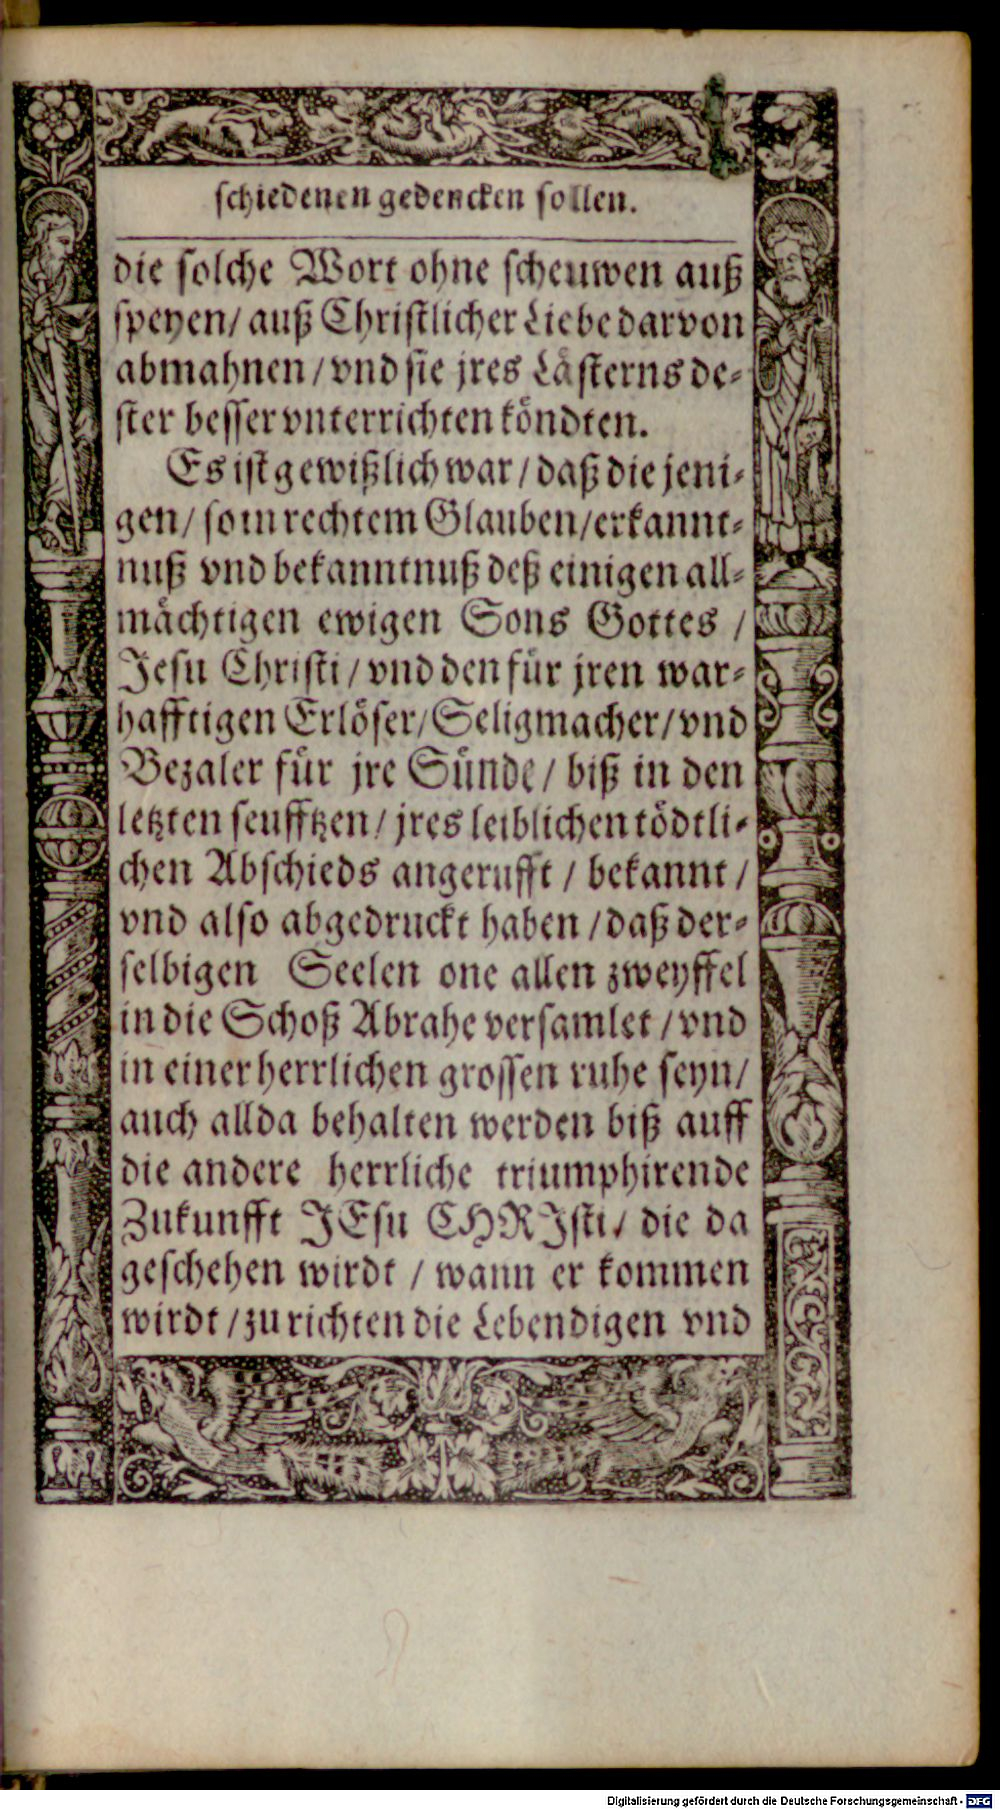 schiedenen gedencken sollen.
die solche Wort ohne scheuwen auß
speyen/ auß Christlicher Liebe darvon
abmahnen / vnd sie jres Lästerns de-
ster besser vnterrichten köndten.
Es ist gewißlich war / daß die jeni-
gen/ so in rechtem Glauben/erkannt-
nuß vnd bekanntnuß deß einigen all-
mächtigen ewigen Sons Gottes /
Jesu Christi / vnd den für jren war-
hafftigen Erlöser/Seligmacher/vnd
Bezaler für jre Sünde / biß in den
letzten seufftzen/ jres leiblichen tödtli-
chen Abschieds angerufft / bekannt /
vnd also abgedruckt haben / daß der-
selbigen Seelen one allen zweyffel
in die Schoß Abrahe versamlet / vnd
in einer herrlichen grossen ruhe seyn/
auch allda behalten werden biß auff
die andere herrliche triumphirende
Zukunfft JEsu CHRJsti/ die da
geschehen wirdt / wann er kommen
wirdt / zu richten die Lebendigen vnd
Digitalisierung gefördert durch die Deutsche Forschungsgemeinschaft - DFG